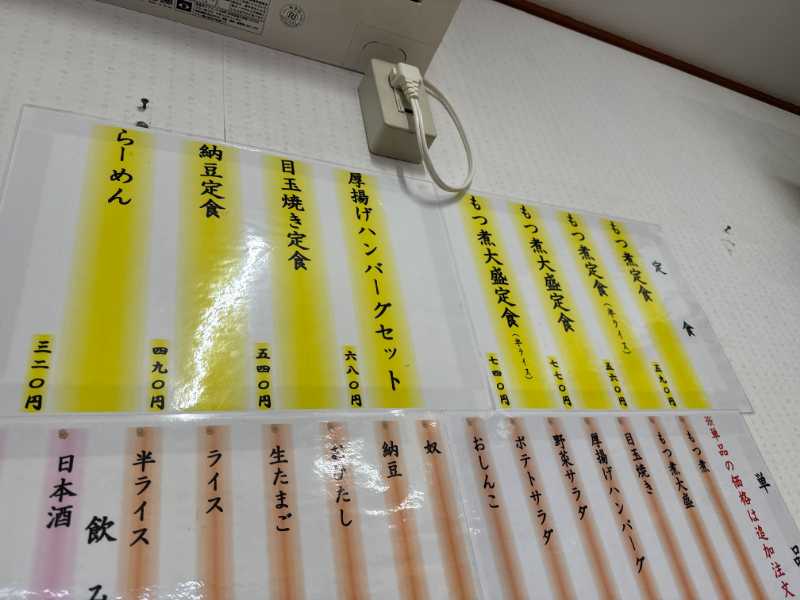 定食
もつ煮定食
五九〇円
もつ煮定食（半ライス）
五六〇円
もつ煮大盛定食
七七〇円
もつ煮大盛定食（半ライス）
七四〇円
厚揚げハンバーグセット
六八〇円
目玉焼き定食
五四〇円
納豆定食
四九〇円
らーめん
三二〇円
単品
※単品の価格は追加注文
もつ煮
もつ煮大盛
目玉焼き
厚揚げハンバーグ
野菜サラダ
ポテトサラダ
おしんこ
奴
納豆
生たまご
ライス
半ライス
飲み
日本酒